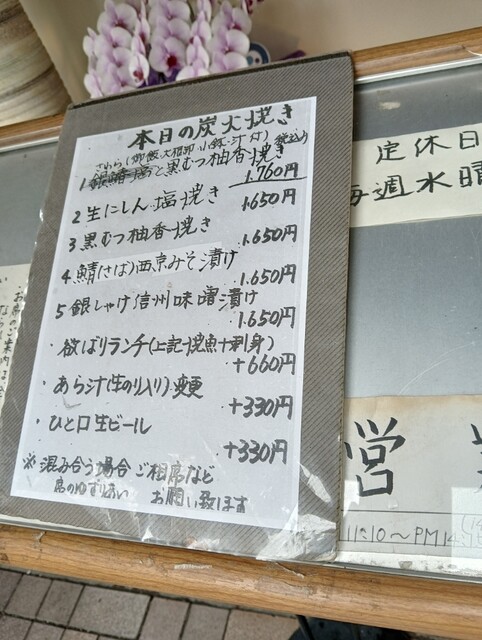 本日の炭火焼き
(御飯、大根卸、小鉢、汁付) 税込み
さわら
1 銀鱈塩と黒むつ柚香焼き
1.760円
2 生にしん塩焼き
1.650円
3 黒むつ柚香焼き
1.650円
4 鯖(さば)西京みそ漬け
1.650円
5 銀しゃけ信州味噌漬け
1.650円
・欲ばりランチ(上記焼魚+刺身)
+660円
・あら汁(生のり入り)変更
+330円
・ひと口生ビール
+330円
※混み合う場合 ご相席など
席のゆずりあい お願い致します
定休日
毎週水曜
営
11:10～PM14: